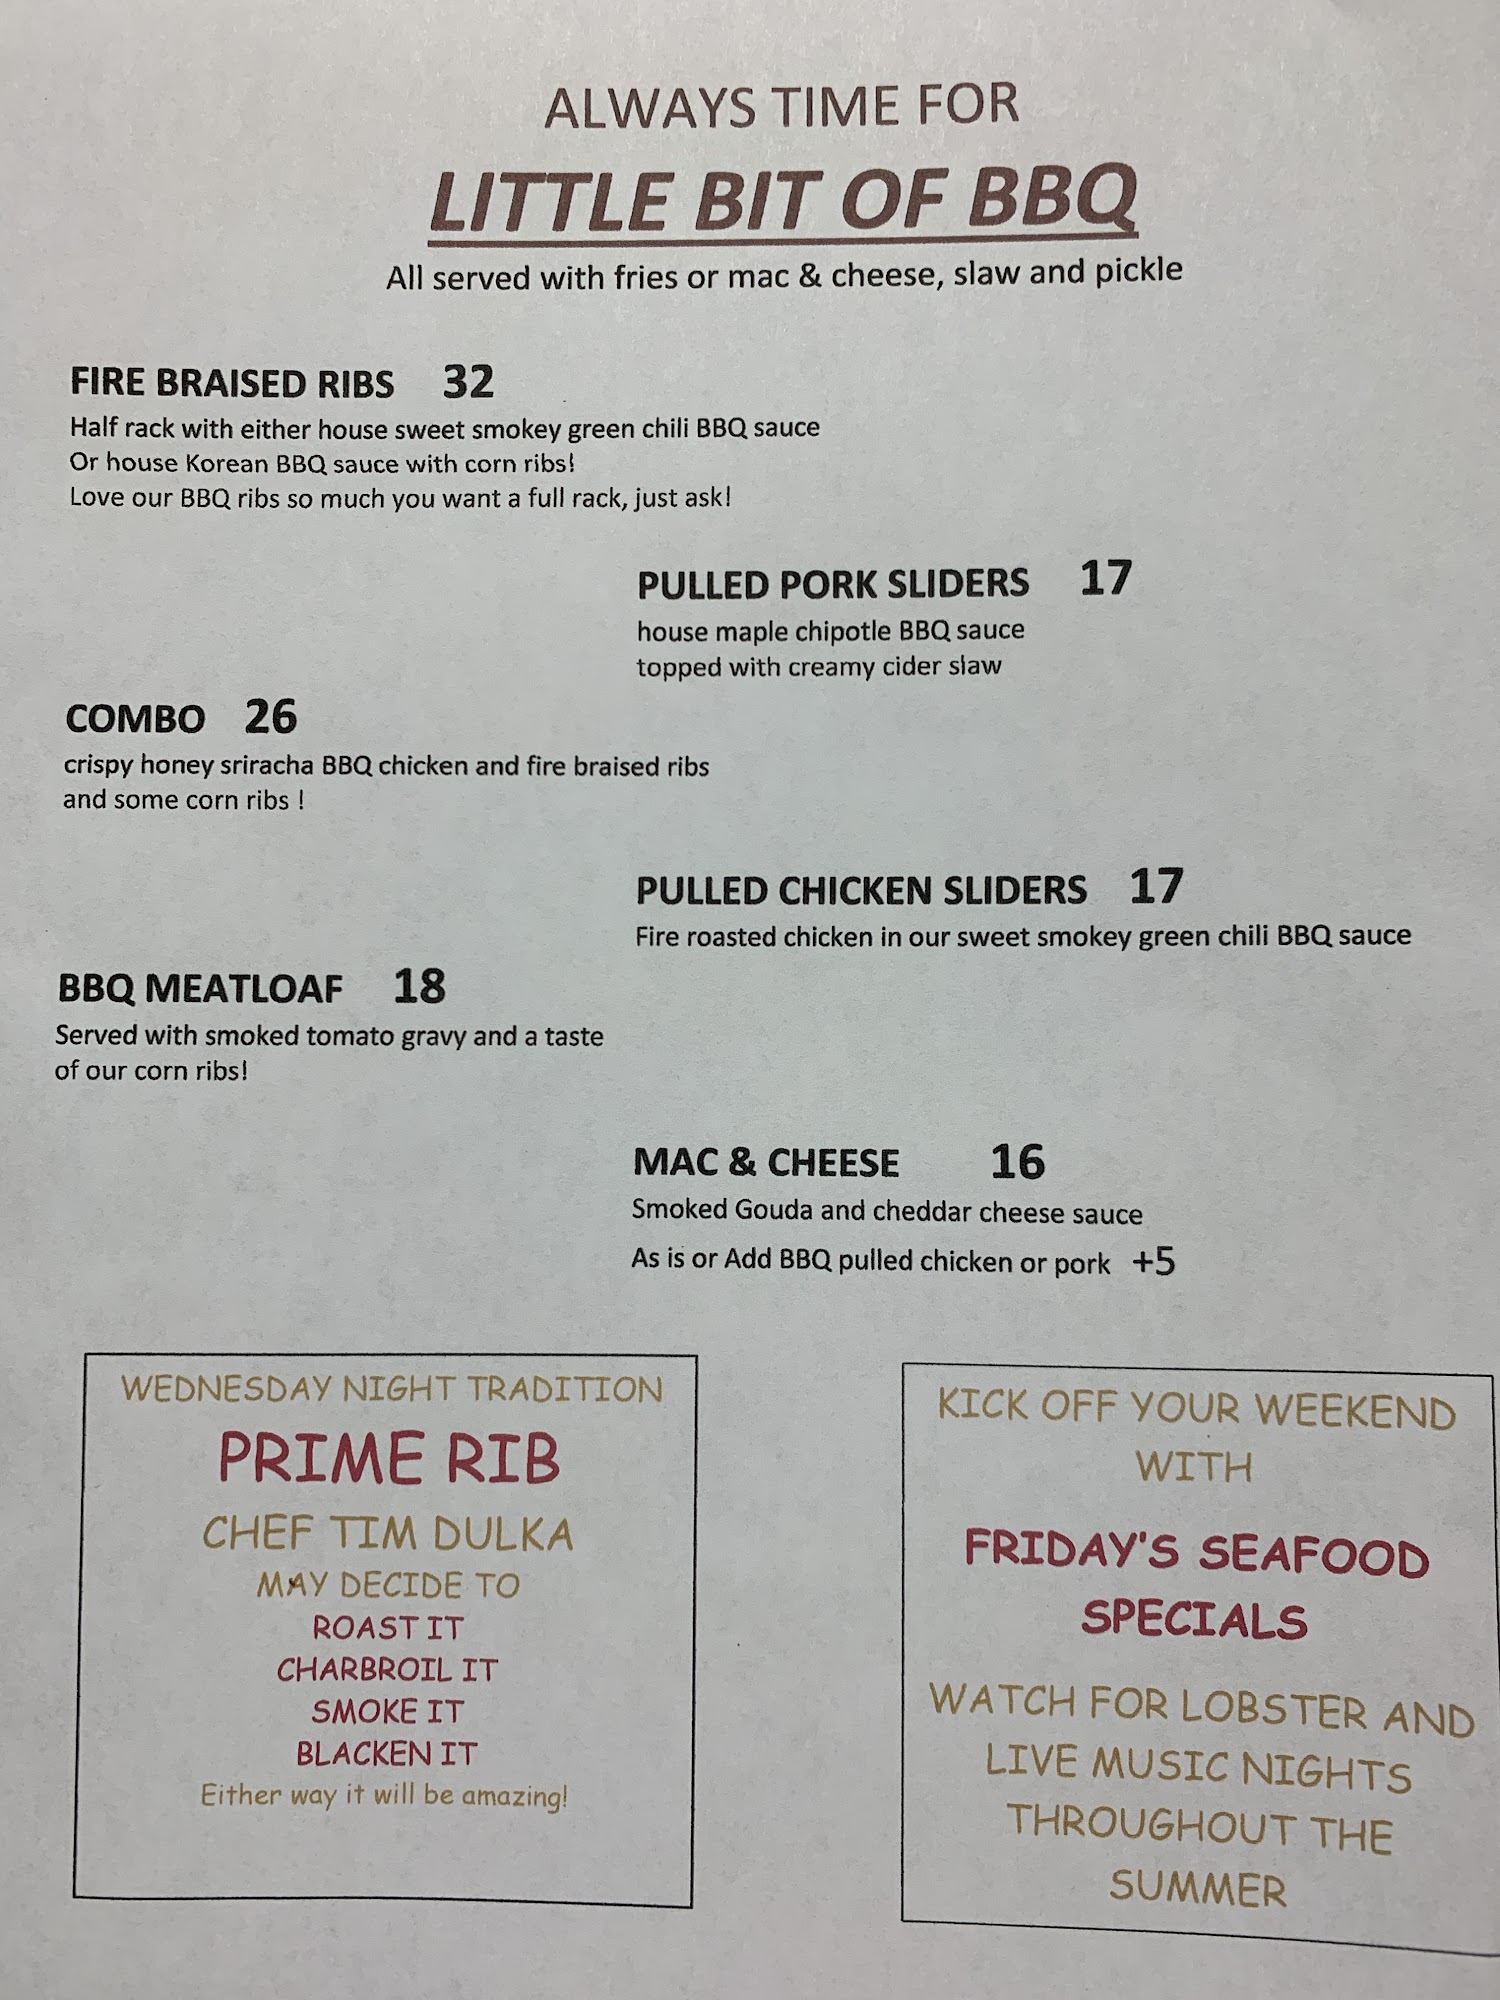 ALWAYS TIME FOR
LITTLE BIT OF BBQ
All served with fries or mac & cheese, slaw and pickle
FIRE BRAISED RIBS 32
Half rack with either house sweet smokey green chili BBQ sauce
Or house Korean BBQ sauce with corn ribs!
Love our BBQ ribs so much you want a full rack, just ask!
PULLED PORK SLIDERS 17
house maple chipotle BBQ sauce
topped with creamy cider slaw
COMBO 26
crispy honey sriracha BBQ chicken and fire braised ribs
and some corn ribs !
PULLED CHICKEN SLIDERS 17
Fire roasted chicken in our sweet smokey green chili BBQ sauce
BBQ MEATLOAF 18
Served with smoked tomato gravy and a taste
of our corn ribs!
MAC & CHEESE 16
Smoked Gouda and cheddar cheese sauce
As is or Add BBQ pulled chicken or pork +5
WEDNESDAY NIGHT TRADITION
PRIME RIB
CHEF TIM DULKA
MAY DECIDE TO
ROAST IT
CHARBROIL IT
SMOKE IT
BLACKEN IT
Either way it will be amazing!
KICK OFF YOUR WEEKEND
WITH
FRIDAY'S SEAFOOD
SPECIALS
WATCH FOR LOBSTER AND
LIVE MUSIC NIGHTS
THROUGHOUT THE
SUMMER